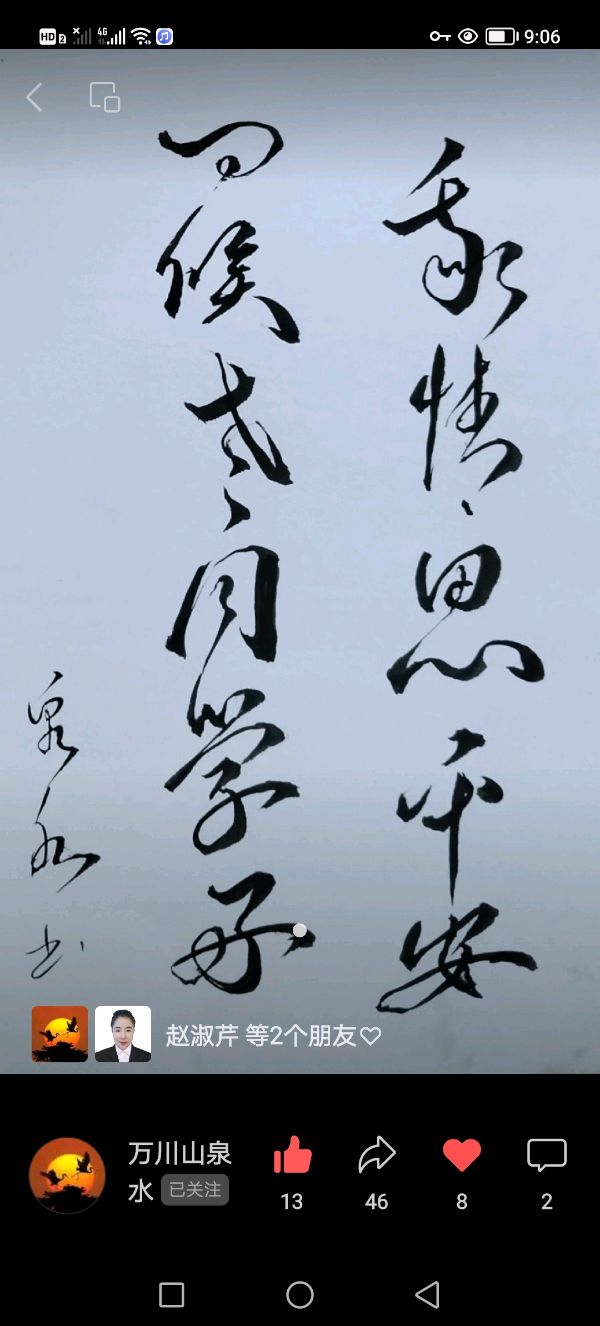 HD 2 4G 9:06
情思平安
问候老同学好
泉水书
赵淑芹 等2个朋友♡
万川山泉
水 已关注
13 46 8 2